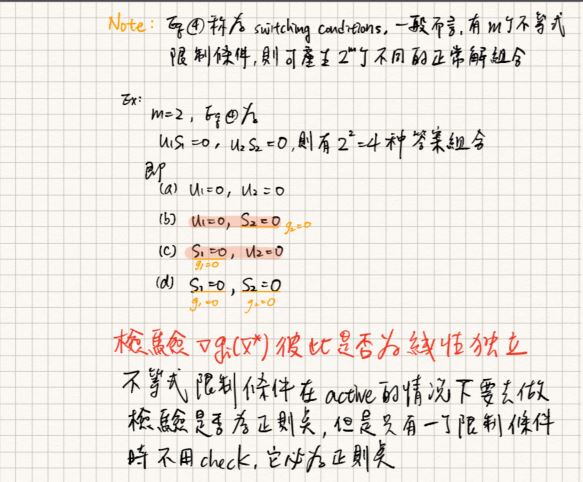 Note: Eq ④ 称为 switching conditions, 一般而言, 有 m 个不等式
限制條件, 則可產生 2^m 个不同的正常解組合
Ex:
m=2, Eq ④ 为
u₁s₁=0, u₂s₂=0, 則有 2²=4 种答案組合
即
(a) u₁=0, u₂=0
(b) u₁=0, s₂=0 g₂=0
(c) s₁=0, u₂=0
g₁=0
(d) s₁=0, s₂=0
g₁=0 g₂=0
檢驗 ∇gᵢ(x*) 彼此是否为線性独立
不等式限制條件在 active 的情况下要去做
檢驗是否为正則奌, 但是只有一个限制條件
時不用 check, 它必为正則奌